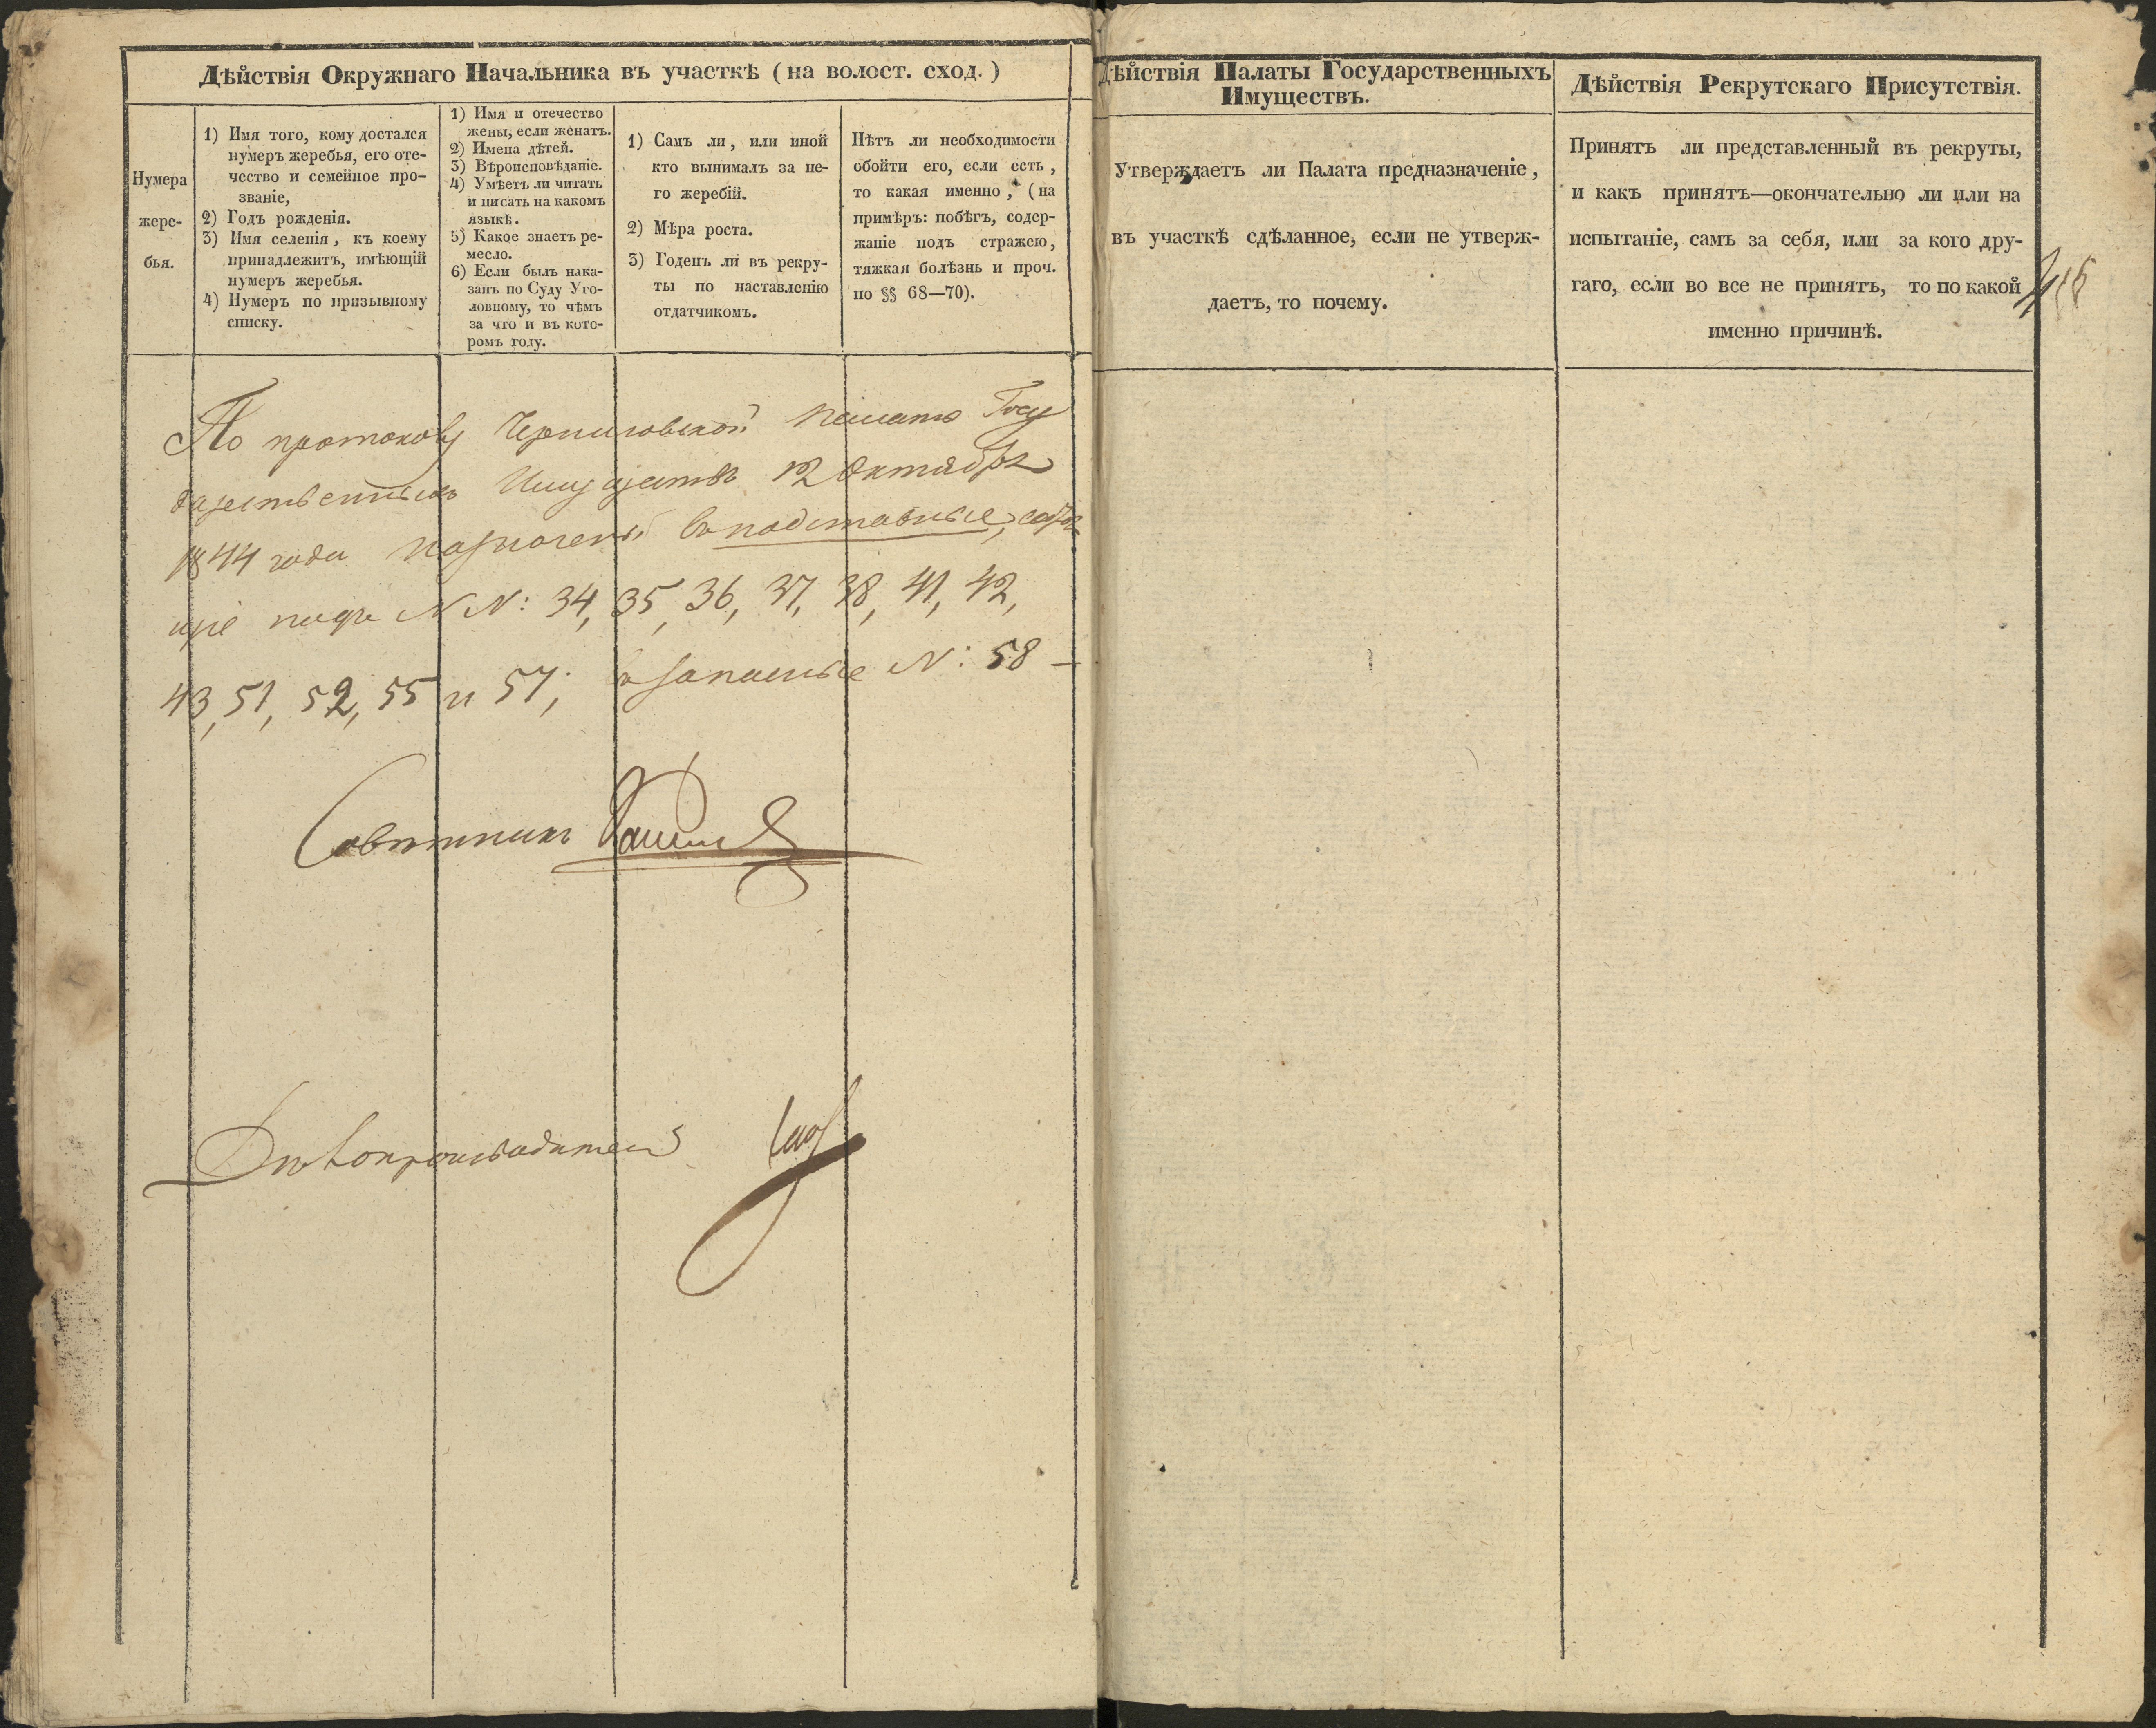 Дѣйствія Окружнаго Начальника въ участкѣ (на волост. сход.)
Нумера
жере-
бья.
1) Имя того, кому достался
нумеръ жеребья, его оте-
чество и семейное про-
званіе,
2) Годъ рожденія.
3) Имя селенія, къ коему
принадлежитъ, имѣющій
нумеръ жеребья.
4) Нумеръ по призывному
списку.
1) Имя и отечество
жены, если женатъ.
2) Имена дѣтей.
3) Вѣроисповѣданіе.
4) Умѣетъ ли читать
и писать на какомъ
языкѣ.
5) Какое знаетъ ре-
месло.
6) Если былъ нака-
занъ по Суду Уго-
ловному, то чѣмъ
за что и въ кото-
ромъ году.
1) Самъ ли, или иной
кто вынималъ за не-
го жеребій.
2) Мѣра роста.
3) Годенъ ли въ рекру-
ты по наставленію
отдатчикомъ.
Нѣтъ ли необходимости
обойти его, если есть,
то какая именно, (на
примѣръ: побѣгъ, содер-
жаніе подъ стражею,
тяжкая болѣзнь и проч.
по §§ 68—70).
По протоколу Черниговской Палаты Госу
дарственныхъ Имуществъ 12 Октября
1844 года назначены въ подставные,
щіе подъ N N: 34, 35, 36, 37, 38, 41, 42,
43, 51, 52, 55 и 57; в запасные N: 58 —
Совѣтникъ
Дѣлопроизводитель
Дѣйствія Палаты Государственныхъ
Имуществъ.
Утверждаетъ ли Палата предназначеніе,
въ участкѣ сдѣланное, если не утверж-
даетъ, то почему.
Дѣйствія Рекрутскаго Присутствія.
Принятъ ли представленный въ рекруты,
и какъ принятъ—окончательно ли или на
испытаніе, самъ за себя, или за кого дру-
гаго, если во все не принятъ, то по какой
именно причинѣ.